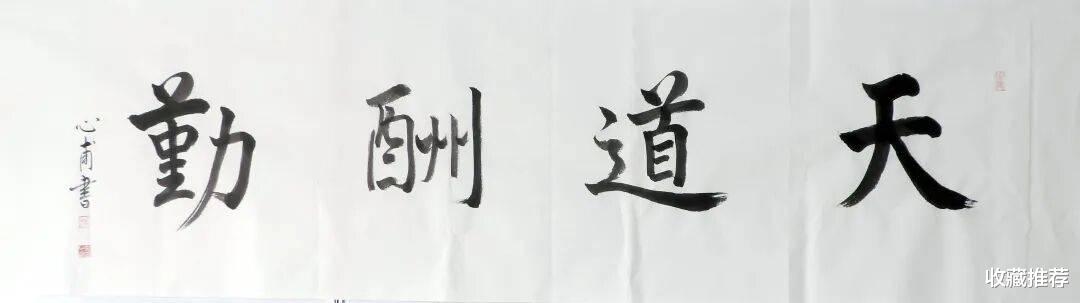 天道酬勤
心甫書
收藏推荐